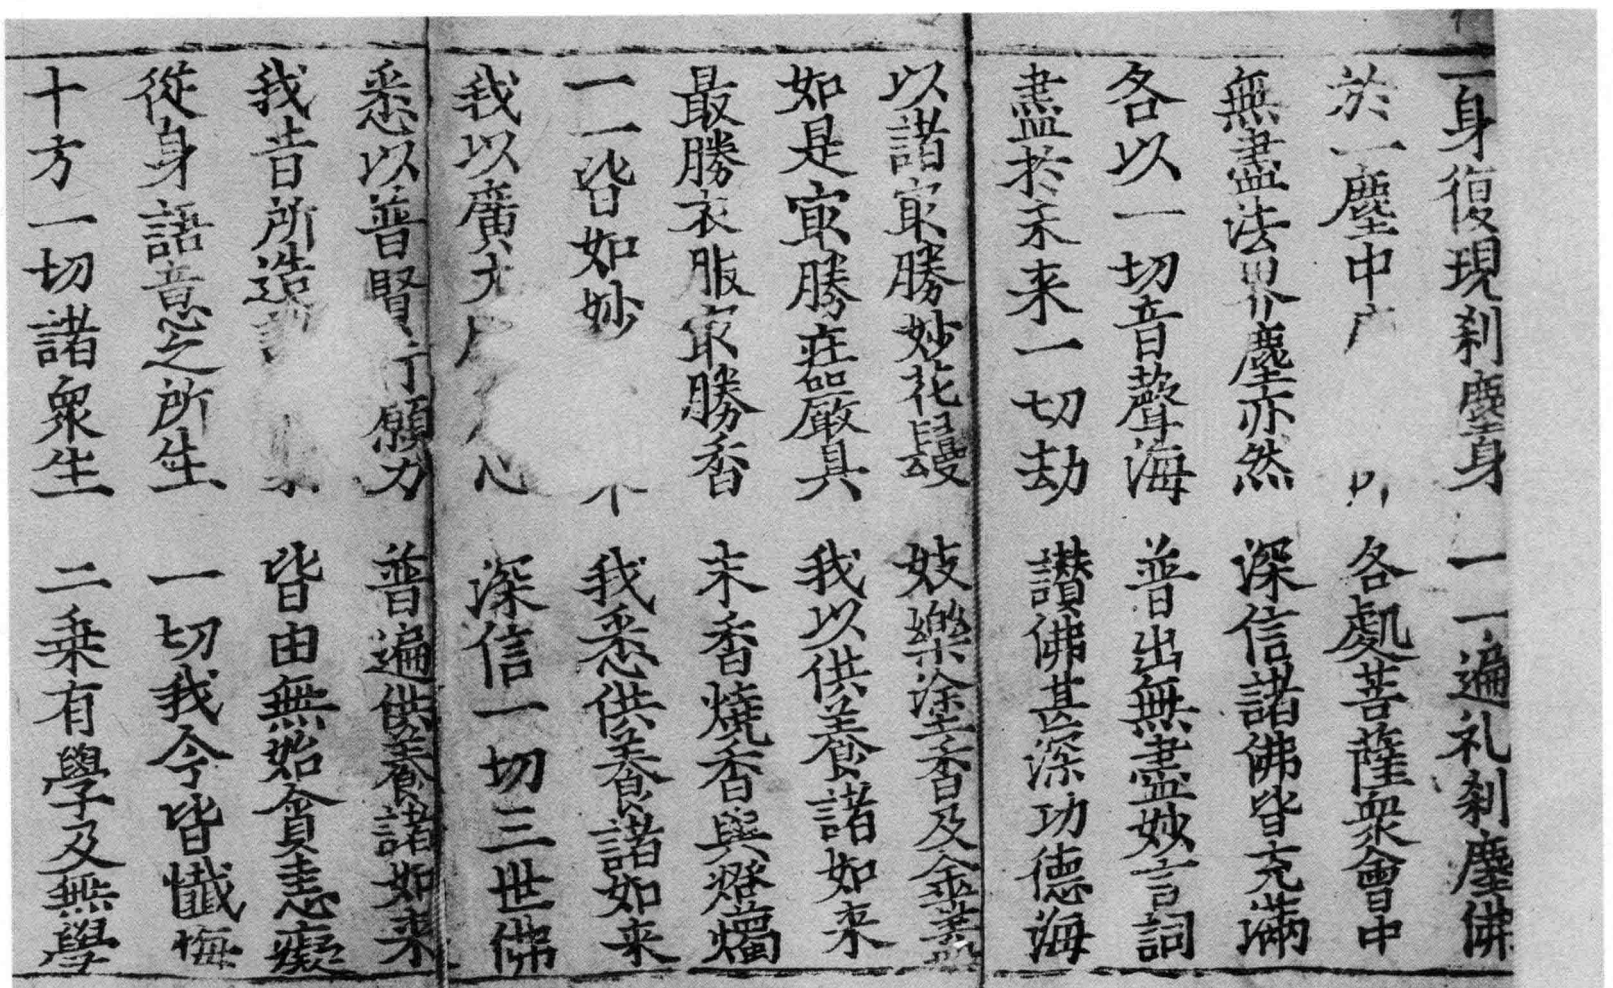 一身復現剎塵身　一一遍礼剎塵佛
於一塵中　各處菩薩衆會中
無盡法界塵亦然　深信諸佛皆充滿
各以一切音聲海　普出無盡妙言詞
盡於未来一切劫　讃佛甚深功德海
以諸㝡勝妙花鬘　妓樂塗香及傘盖
如是㝡勝庄嚴具　我以供養諸如来
最勝衣服㝡勝香　末香燒香與燈燭
一一皆如妙　我悉供養諸如来
我以廣大　心　深信一切三世佛
悉以普賢行願力　普遍供養諸如来
我昔所造　皆由無始貪恚癡
從身語意之所生　一切我今皆懺悔
十方一切諸衆生　二乗有學及無學